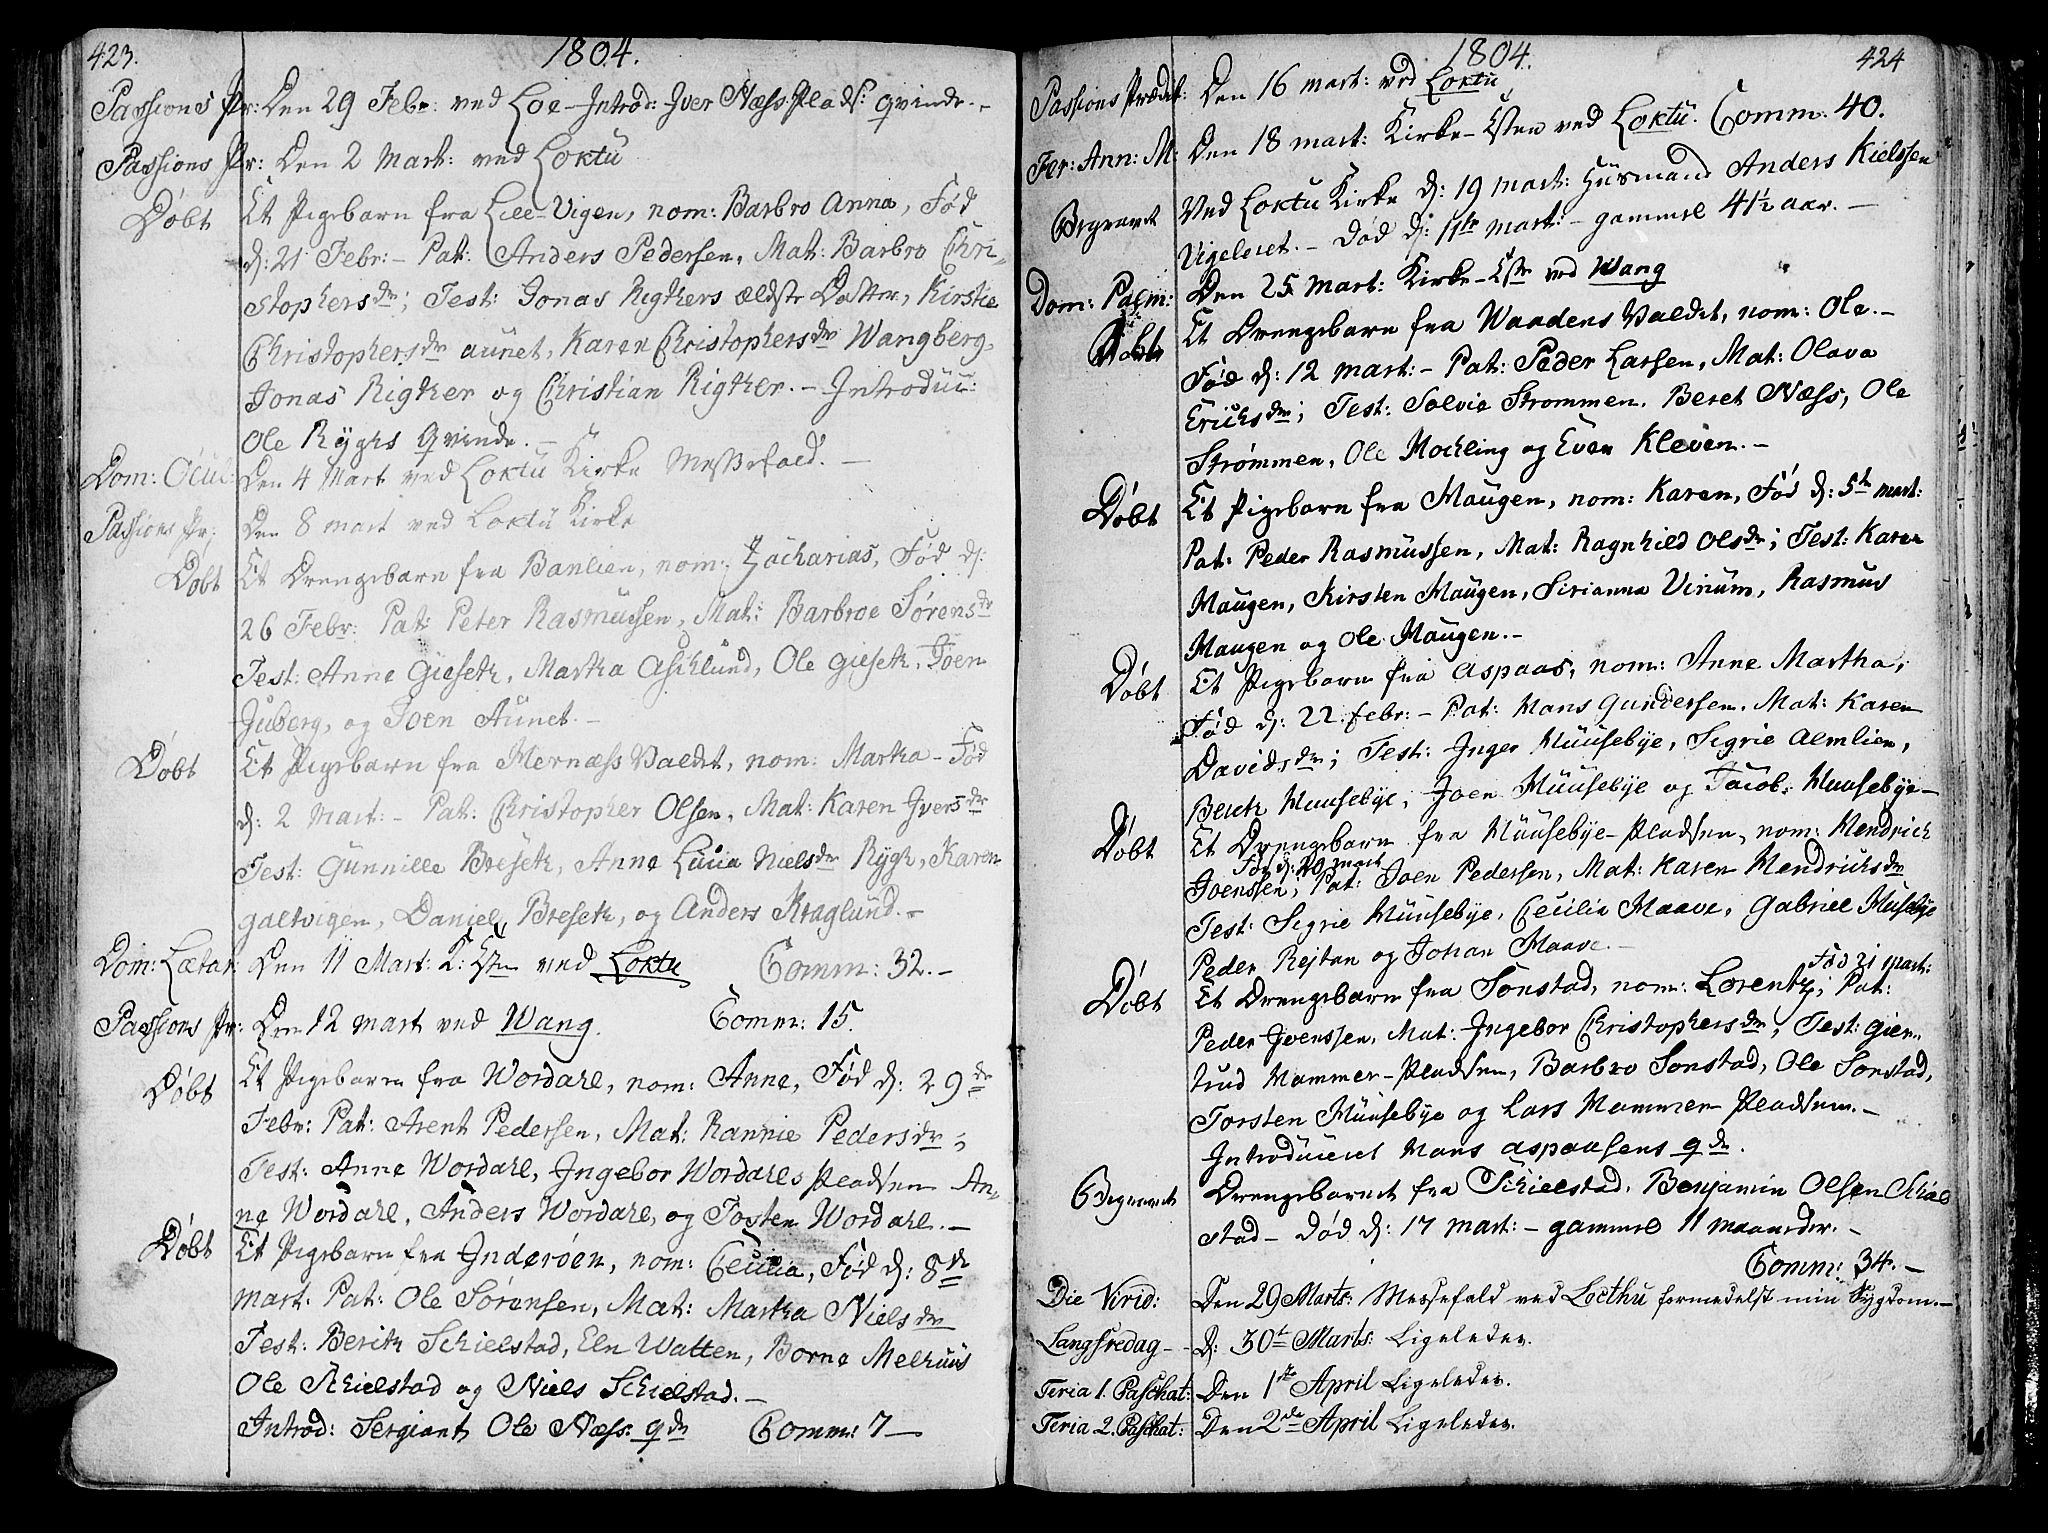 423.
1804.
Passions Pr: Den 29 Febr: ved Loe - Introd: Iver Næss Plads: qvinde. -
Passions Pr: Den 2 Mart: ved Loktu
Døbt Et Pigebarn fra Lee-Vigen, nom: Barbro Anna, Fød
d: 21 Febr: - Pat: Anders Pedersen, Mat: Barbro Chri-
stophersdr; Test: Jonas Rigthers ældste Datter, Kirstie
Christophersdr aunet, Karen Christophersdr Wangberg,
Jonas Rigther og Christian Rigther. - Introduc:
Ole Ryghs Qvinde. -
Dom: Ocul: Den 4 Mart ved Loktu Kirke Messefald. -
Passions Pr: Den 8 mart ved Loktu Kirke
Døbt Et Drengebarn fra Banlien, nom: Zacharias, Fød d:
26 Febr: Pat: Peter Rasmussen, Mat: Barbroe Sørensdr
Test: Anne Gieseth, Martha Aschlund, Ole Gieseth, Joen
Juberg, og Joen Aunet. -
Døbt Et Pigebarn fra Mernæss Valdet, nom: Martha - Fød
d: 2 Mart: - Pat: Christopher Olsen, Mat: Karen Iversdr
Test: Gunnille Breseth, Anne Lucia Nielsdr Rygh, Karen
galtvigen, Daniel Breseth, og Anders Kraglund. -
Dom: Lætar: Den 11 Mart: K: Esten ved Loktu Comm: 32. -
Passions Pr: Den 12 mart ved Wang. Comm: 15.
Døbt Et Pigebarn fra Wordahl, nom: Anne, Fød d: 29de
Febr: Pat: Arent Pedersen, Mat: Rannie Pedersdr;
Test: Anne Wordahl, Ingebor Wordahls Pladsen An-
ne Wordahl, Anders Wordahl, og Tosten Wordahl. -
Døbt Et Pigebarn fra Inderøen, nom: Cecilia, Fød d: 8de
mart: Pat: Ole Sørensen, Mat: Martha Nielsdr
Test: Berith Schielstad, Eln Watten, Borne Melhuus
Ole Schielstad og Niels Schielstad. -
Introd: Sergiant Ole Næss: qde Comm: 7 -
1804.
424
Passions Prædik: Den 16 mart: ved Loktu
Fer: Ann: M: Den 18 mart: Kirke-Esten ved Loktu. Comm: 40.
Begravet Ved Loktu Kirke d: 19 mart: Huusmand Anders Kielssen
Vigeleret. - død d: 11te mart: - gammel 41½ aar. -
Dom: Palm: Den 25 Mart: Kirke-Este ved Wang
Døbt Et Drengebarn fra Waadens Valdet, nom: Ole. -
Fød d: 12 mart: - Pat: Peder Larsen, Mat: Olava
Erichsdr; Test: Solvie Strommen, Beret Næss, Ole
Strømmen, Ole Mochling og Even Kleven. -
Døbt Et Pigebarn fra Maugen, nom: Karen, Fød d: 5te mart:
Pat: Peder Rasmussen, Mat: Ragnhild Olsdr; Test: Karen
Maugen, Kirsten Maugen, Sirianna Vinum, Rasmus
Maugen og Ole Maugen. -
Døbt Et Pigebarn fra Aspaas, nom: Anne Martha,
Fød d: 22 febr: - Pat: Hans Gundersen, Mat: Karen
Davidsdr; Test: Inger Huusebye, Sigrie Almlien,
Berith Huusebye, Joen Huusebye og Jacob Huusebye -
Døbt Et Drengebarn fra Huusebye-Pladsen, nom: Hendrich
Fød d: 20 mart
Joenssen; Pat: Joen Pedersen, Mat: Karen Hendrichsdr
Test: Sigrie Huusebye, Cecilia Maave, Gabriel Husebye
Peder Rejtan og Johan Maave. -
Fød 21 mart:
Døbt Et Drengebarn fra Sonstad, nom: Lorentz; Pat:
Peder Joenssen, Mat: Ingebor Christophersdr, Test: Gier-
trud Hammer-Pladsen, Barbro Sonstad, Ole Sonstad,
Torsten Huusebye og Lars Hammer Pladsen. -
Introduceret Hans Aspaasens qde.
Begravet Drengebarnet fra Schielstad, Benjamin Olsen Schiel
stad - død d: 17 mart: - gammel 11 maaneder. -
Comm: 34. -
Die Virid: Den 29 Marts: Messefald ved Locthu formedelst min Sygdom. -
Langfredag - - d: 30te Marts: Ligeledes.
Feria 1. Paschat: Den 1ste April Ligeledes.
Feria 2. Paschat: Den 2de April Ligeledes.